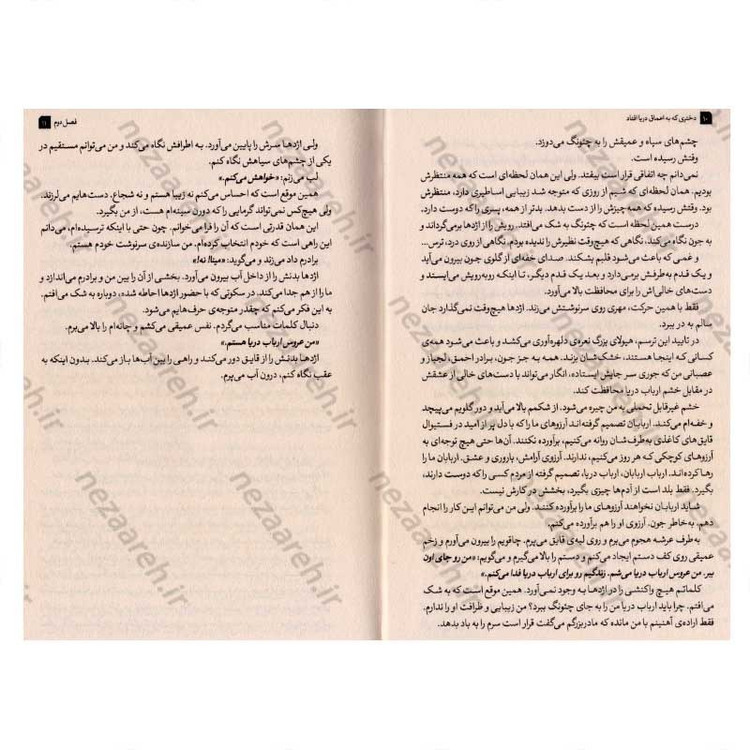 ۱۰ دختری که به اعماق دریا افتاد
چشم‌های سیاه و عمیقش را به چئونگ می‌دوزد.
وقتش رسیده است.
نمی‌دانم چه اتفاقی قرار است بیفتد. ولی این همان لحظه‌ای است که همه منتظرش
بودیم. همان لحظه‌ای که شیم از روزی که متوجه شد زیبایی اساطیری دارد، منتظرش
بود. وقتش رسیده که همه چیزش را از دست بدهد. بدتر از همه، پسری را که دوست دارد.
درست همین لحظه است که چئونگ به شک می‌افتد. رویش را از اژدها برمی‌گرداند و
به جون نگاه می‌کند، نگاهی که هیچ‌وقت نظیرش را ندیده بودم. نگاهی از روی درد، ترس...
و غمی که باعث می‌شود قلبم بشکند. صدای خفه‌ای از گلوی جون بیرون می‌آید
و یک قدم به‌طرفش برمی‌دارد و بعد یک قدم دیگر، تا اینکه روبه‌رویش می‌ایستد و
دست‌های خالی‌اش را برای محافظت بالا می‌آورد.
فقط با همین حرکت، مهری روی سرنوشتش می‌زند. اژدها هیچ‌وقت نمی‌گذارد جان
سالم به در ببرد.
در تایید این ترسم، هیولای بزرگ نعره‌ی دلهره‌آوری می‌کشد و باعث می‌شود همه‌ی
کسانی که اینجا هستند، خشک‌شان بزند. همه به جز جون، برادر احمق، لجباز و
عصبانی من که جوری سر جایش ایستاده، انگار می‌تواند با دست‌های خالی از عشقش
در مقابل خشم ارباب دریا محافظت کند.
خشم غیرقابل تحملی به من چیره می‌شود. از شکمم بالا می‌آید و دور گلویم می‌پیچد
و خفه‌ام می‌کند. اربابان تصمیم گرفته‌اند آرزوهای ما را که با دل پر از امید در فستیوال
قایق‌های کاغذی به‌طرف‌شان روانه می‌کنیم، برآورده نکنند. آن‌ها حتی هیچ توجه‌ای به
آرزوهای کوچکی که هر روز می‌کنیم، ندارند. آرزوی آرامش، باروری و عشق. اربابان ما را
رها کرده‌اند. ارباب اربابان، ارباب دریا، تصمیم گرفته از مردم کسی را که دوست دارند،
بگیرد. فقط بلد است از آدم‌ها چیزی بگیرد، بخشش در کارش نیست.
شاید اربابان نخواهند آرزوهای ما را برآورده کنند. ولی من می‌توانم این کار را انجام
دهم. به‌خاطر جون. آرزوی او را هم برآورده می‌کنم.
به‌طرف عرشه هجوم می‌برم و روی لبه‌ی قایق می‌پرم. چاقویم را بیرون می‌آورم و زخم
عمیقی روی کف دستم ایجاد می‌کنم و دستم را بالا می‌گیرم و می‌گویم: «من رو جای اون
ببر. من عروس ارباب دریا می‌شم. زندگیم رو برای ارباب دریا فدا می‌کنم.»
کلماتم هیچ واکنشی را در اژدها به وجود نمی‌آورد. همین موقع است که به شک
می‌افتم. چرا باید ارباب دریا من را به جای چئونگ ببرد؟ من زیبایی و ظرافت او را ندارم.
فقط اراده‌ی آهنینم با من مانده که مادربزرگم می‌گفت قرار است سرم را به باد بدهد.
فصل دوم ۱۱
ولی اژدها سرش را پایین می‌آورد. به اطرافش نگاه می‌کند و من می‌توانم مستقیم در
یکی از چشم‌های سیاهش نگاه کنم.
لب می‌زنم: «خواهش می‌کنم.»
همین موقع است که احساس می‌کنم نه زیبا هستم و نه شجاع. دست‌هایم می‌لرزند.
ولی هیچ‌کس نمی‌تواند گرمایی را که درون سینه‌ام هست، از من بگیرد.
این همان قدرتی است که آن را فرا می‌خوانم. چون حتی با اینکه ترسیده‌ام، می‌دانم
این راهی است که خودم انتخاب کرده‌ام. من سازنده‌ی سرنوشت خودم هستم.
برادرم داد می‌زند و می‌گوید: «مینا! نه!»
اژدها بدنش را از داخل آب بیرون می‌آورد. بخشی از آن را بین من و برادرم می‌اندازد و
ما را از هم جدا می‌کند. در سکوتی که با حضور اژدها احاطه شده، دوباره به شک می‌افتم.
به این فکر می‌کنم که چقدر متوجه‌ی حرف‌هایم می‌شود.
دنبال کلمات مناسب می‌گردم. نفس عمیقی می‌کشم و چانه‌ام را بالا می‌برم.
«من عروس ارباب دریا هستم.»
اژدها بدنش را از قایق دور می‌کند و راهی را بین آب‌ها باز می‌کند. بدون اینکه به
عقب نگاه کنم، درون آب می‌پرم.
nezaareh.ir